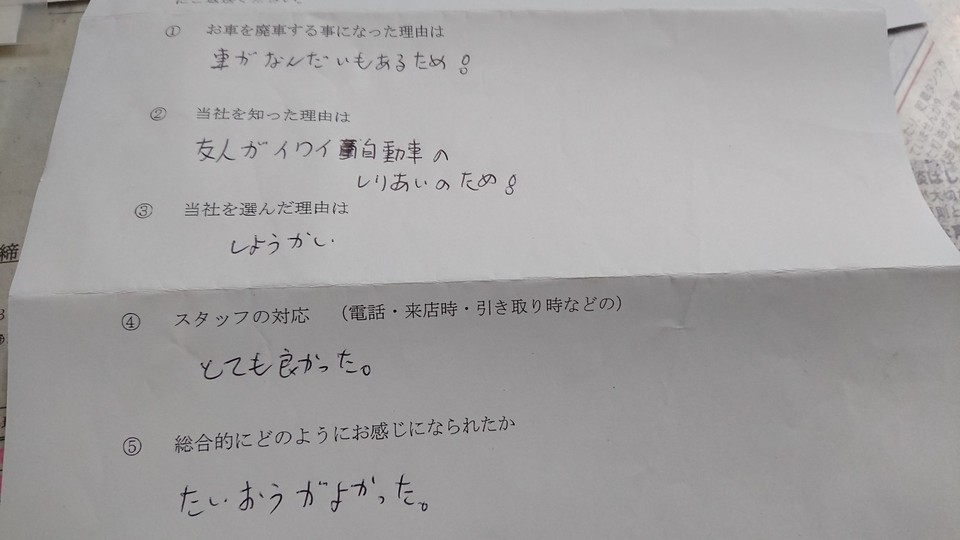 ① お車を廃車する事になった理由は
車がなんだいもあるため。
② 当社を知った理由は
友人がイワイ自動車の
しりあいのため。
③ 当社を選んだ理由は
しようかい
④ スタッフの対応 (電話・来店時・引き取り時などの)
とても良かった。
⑤ 総合的にどのようにお感じになられたか
たいおうがよかった。
締